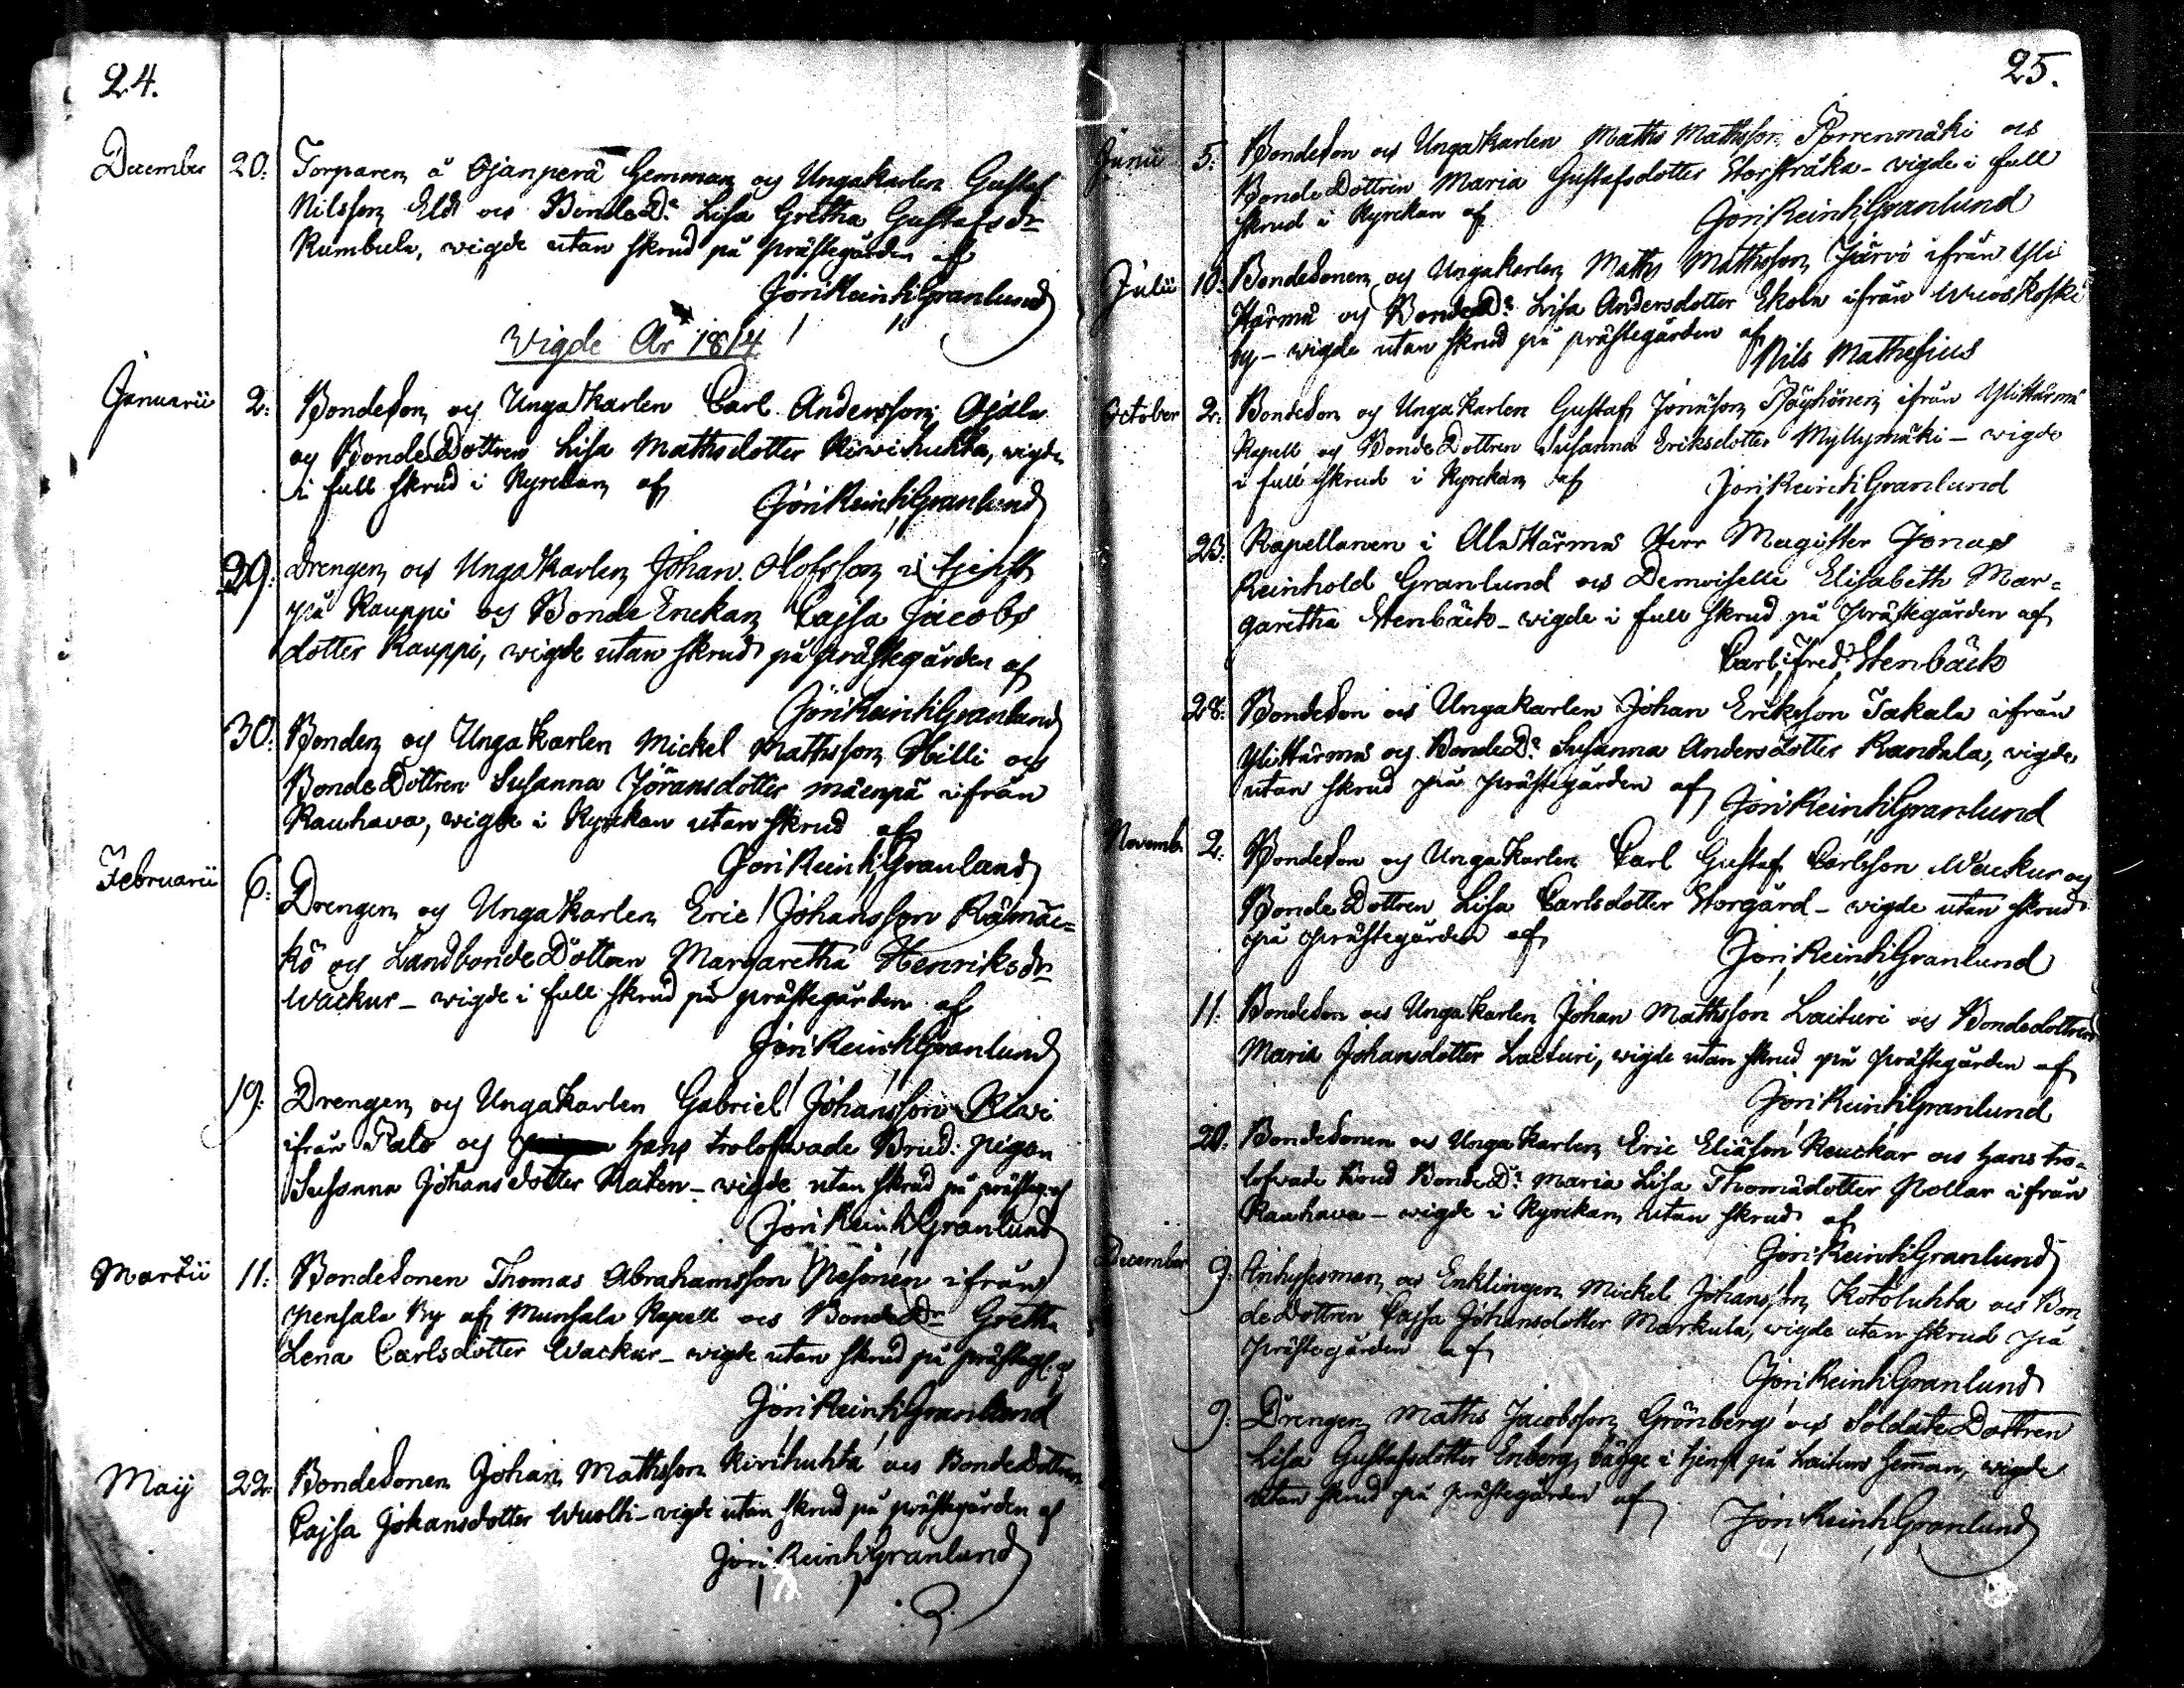 24.
December 20: Torparen å Ojanperä Hemman och Ungakarlen Gustaf
Nilsson Eld och BondeDr Lisa Gretha Gustafsdr
Rumbula, wigde utan skrud på prästegården af
Jon: Reinh: Granlund
Wigde År 1814
Januarii 2: Bondeson och Ungakarlen Carl Andersson Ojala
och BondeDottren Lisa Mathsdotter Kiwihuhta, wigde
i full skrud i Kyrckan af
Jon: Reinh: Granlund
29: Drengen och Ungakarlen Johan Olofsson i tjenst
på Kauppi och Bonde Enckan Cajsa Jacobs
dotter Kauppi, wigde utan skrud på prästegården af
Jon: Reinh: Granlund
30: Bonden och Ungakarlen Mickel Mathsson Hilli och
BondeDottren Susanna Jöransdotter Mäenpä ifrån
Kauhava, wigde i Kyrckan utan skrud af
Jon: Reinh: Granlund
Februarii 6: Drengen och Ungakarlen Eric Johansson Rämäc=
kö och LandbondeDottren Margaretha Henriksdr
Wackur – wigde i full skrud på prästegården af
Jon: Reinh: Granlund
19: Drengen och Ungakarlen Gabriel Johansson Kiwi
ifrån Palo och hans trolofwade Brud: pigan
Susanna Johansdotter – wigde utan skrud på prästeg: af
Jon: Reinh: Granlund
Martii 11: BondeSonen Thomas Abrahamsson ifrån
Pensala By af Munsala Kapell och BondeDr Greta
Lena Carlsdotter Wackur – wigde utan skrud på prästeg: af
Jon: Reinh: Granlund
Maij 22: BondeSonen Johan Mathsson Kiwihuhta och BondeDottren
Cajsa Johansdotter Wuolti – wigde utan skrud på prästegården af
Jon: Reinh: Granlund
25.
Junii 5: BondeSon och Ungakarlen Maths Mathsson Porrenmäki och
BondeDottren Maria Gustafsdotter Storstråka – wigde i full
skrud i Kyrckan af
Jon: Reinh: Granlund
Julii 10: BondeSonen och Ungakarlen Maths Mathsson Järvi ifrån Yli
Härmä och BondeDr Lisa Andersdotter Ekola ifrån Wuoskoski
by – wigde utan skrud på prästegården af
Nils Mathesius
October 2: BondeSon och Ungakarlen Gustaf Jonasson Pöyhönen ifrån YliHärmä
Kapell och BondeDottren Susanna Eriksdotter Myllymäki – wigde
i full skrud i Kyrckan af
Jon: Reinh: Granlund
23: Kapellanen i AlaHärmä Herr Magister Jonas
Reinhold Granlund och Demoiselle Elisabeth Mar=
garetha Stenbäck – wigde i full skrud på Prästegården af
Carl Fred: Stenbäck
28: BondeSon och Ungakarlen Johan Eriksson Takala ifrån
YliHärmä och BondeDr Susanna Andersdotter Kandala, wigde
utan skrud på Prästegården af
Jon: Reinh: Granlund
Novemb. 2: BondeSon och Ungakarlen Carl Gustaf Carlsson Wackur och
BondeDottren Lisa Carlsdotter Storgård – wigde utan skrud
på Prästegården af
Jon: Reinh: Granlund
11: BondeSon och Ungakarlen Johan Mathsson Laituri och Bondedottren
Maria Johansdotter Laituri, wigde utan skrud på Prästegården af
Jon: Reinh: Granlund
20: BondeSonen och Ungakarlen Eric Eliäson Kauckar och hans tro=
lofwade Brud BondeDr Maria Lisa Thomädotter Pollar ifrån
Kauhava – wigde i Kyrckan utan skrud af
Jon: Reinh: Granlund
December 9: Inhysesman och Enklingen Mickel Johansson Kotoluhta och Bon
deDottren Cajsa Johansdotter Markula, wigde utan skrud på
Prästegården af
Jon: Reinh: Granlund
9: Drengen Maths Jacobsson Grönberg och SoldateDottren
Lisa Gustafsdotter Enberg, bägge i tjenst på Laituri Hemman, wigde
utan skrud på Prästegården af
Jon: Reinh: Granlund